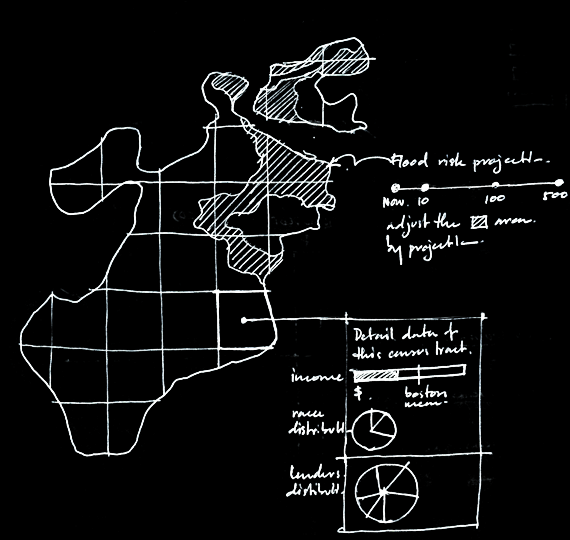 Flood risk projecti-.
Now. 10 100 500
adjust the area.
by projecti-.
Detail data of
this census tract.
income
$. boston
mean
race
distributi.
lenders
distributi.